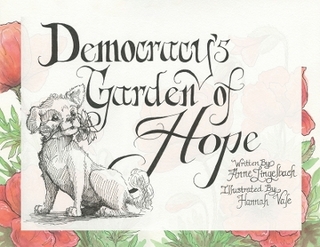 Democracy's
Garden of
Hope
Written By:
Anne Jingelbach
Illustrated By
Hannah Vale